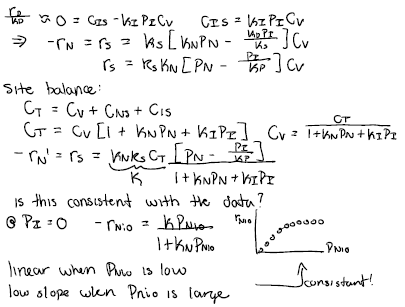 r_D/k_D ≈ 0 = C_IS - K_I P_I C_V   C_IS = K_I P_I C_V
⇒ -r_N = r_S = k_S [K_N P_N - K_D P_I/K_S] C_V
r_S = k_S K_N [P_N - P_I/K_P] C_V
Site balance:
C_T = C_V + C_NS + C_IS
C_T = C_V [1 + K_N P_N + K_I P_I]   C_V = C_T/1+K_N P_N + K_I P_I
-r_N' = r_S = K_N k_S C_T [P_N - P_I/K_P]/1+K_N P_N + K_I P_I
K
is this consistent with the data?
@ P_I = 0   -r_Nio = K P_Nio/1+K_N P_Nio
r_Nio
P_Nio
linear when P_Nio is low
consistent!
low slope when P_nio is large